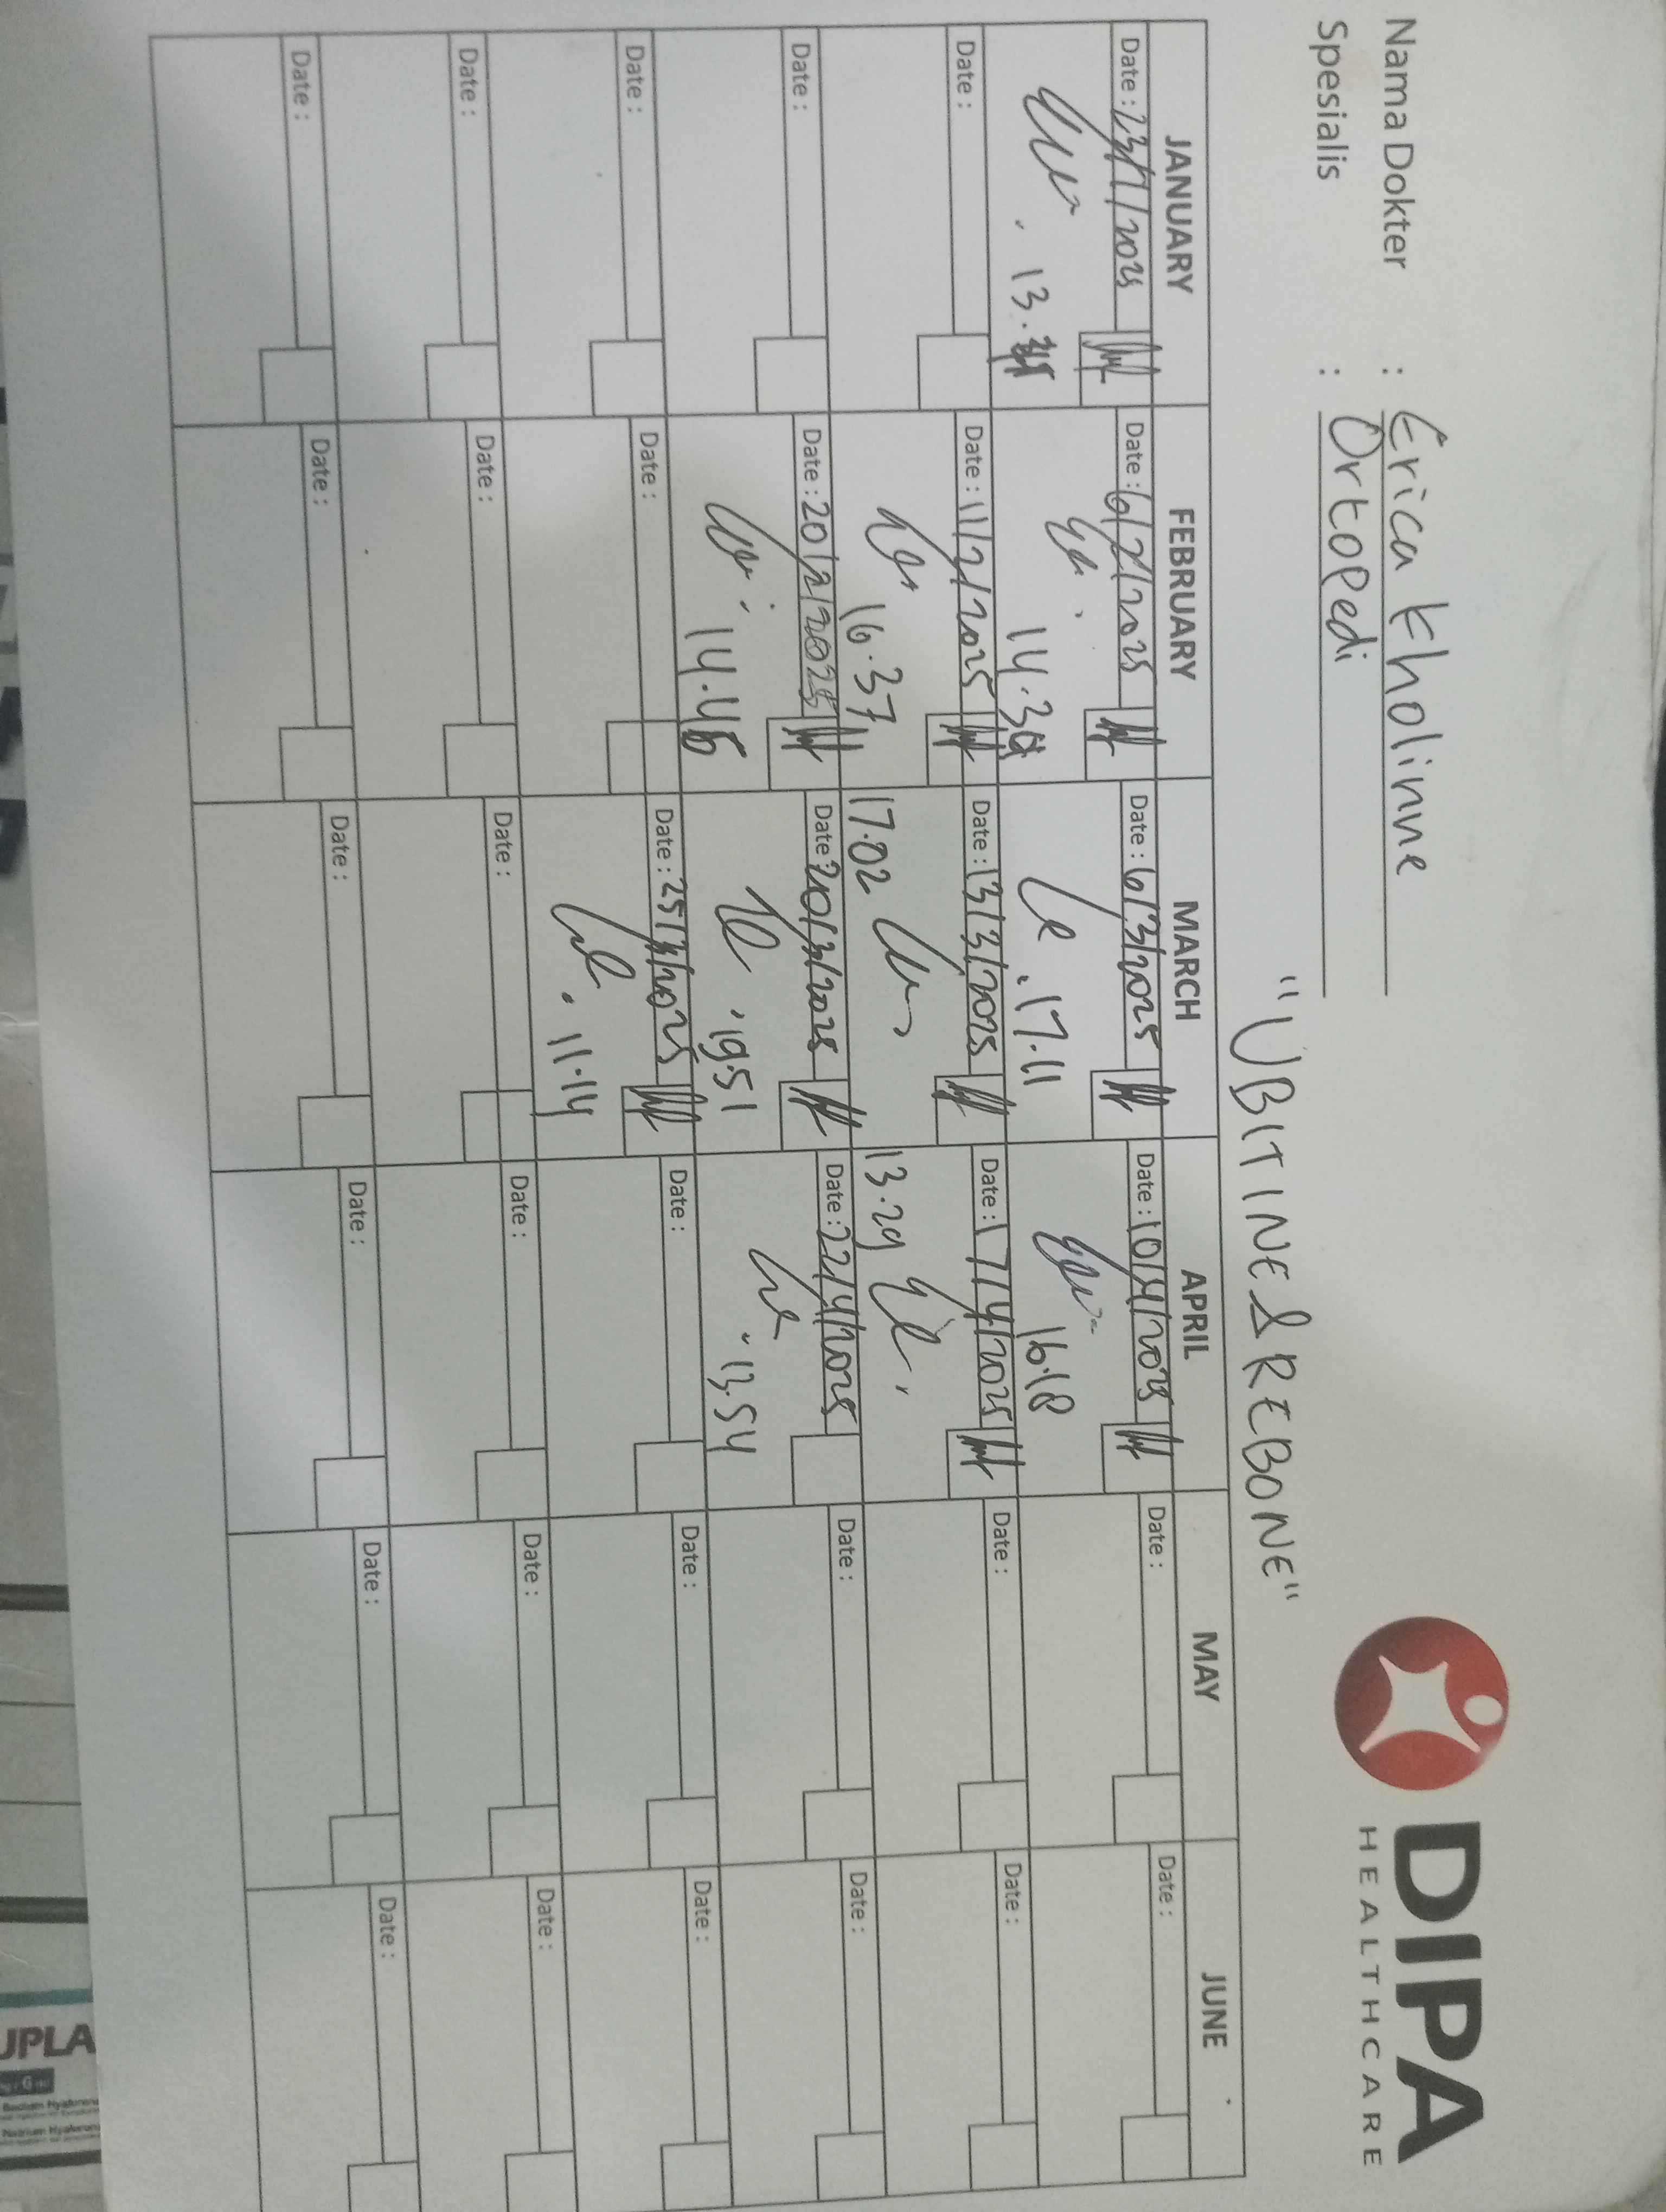 Nama Dokter : Erica Kholinne
Spesialis : Ortopedi
DIPA
HEALTHCARE
"UBITINE & REBONE"
JANUARY FEBRUARY MARCH APRIL MAY JUNE
Date : 23/1/2025 Date : 6/2/2025 Date : 6/3/2025 Date : 10/4/2025 Date : Date :
14.39 17.11 16.18
Date : Date : 11/2/2025 Date : 13/3/2025 Date : 17/4/2025 Date : Date :
16.37 17.02 13.29
Date : Date : 20/2/2025 Date : 20/3/2025 Date : 22/4/2025 Date : Date :
14.46 19.51 13.54
Date : Date : Date : 25/3/2025 Date : Date : Date :
11.14
Date : Date : Date : Date : Date : Date :
Date : Date : Date : Date : Date : Date :
UPLA